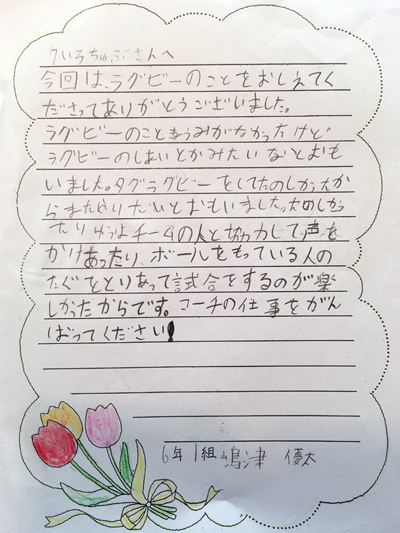 クいろちゅぶさんへ
今回は、ラグビーのことをおしえてく
ださってありがとうございました。
ラグビーのこときょうみがなかったけど
ラグビーのしあいとかみたいなとおも
いました。タグラグビーをしてたのしかったか
らまたやりたいとおもいました。たのしかっ
たりゆうはチームの人と協力して声を
かけあったり、ボールをもっている人の
たぐをとりあって試合をするのが楽
しかったからです。コーチの仕事をがん
ばってください!
6年1組 嶋津 優太